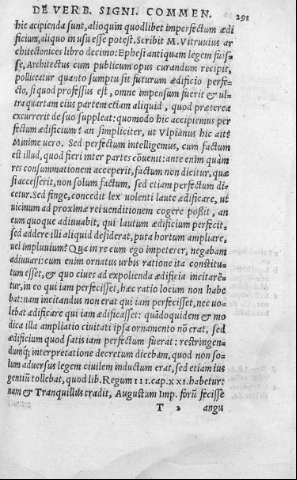 DE VERB. SIGNI. COMMEN. 291
hic accipienda sunt, alioquin quodlibet imperfectum ædi
ficium, aliquo in usu esse potest. Scribit M. Vitruuius ar
chitectonices libro decimo: Ephesi antiquam legem fuis-
se, Architectus cum publicum opus curandum recipit,
pollicetur quanto sumptu sit futurum ædificio perfe-
cto, si quod professus est, omne impensum fuerit & ul-
tra quartam eius partem etiam aliquid, quod præterea
excurrerit de suo suppleat: quomodo hic accipimus per
fectum ædificium? an simpliciter, ut Vlpianus hic ait?
Minime uero. Sed perfectum intelligemus, cum factum
est illud, quod fieri inter partes cōuenit: ante enim quàm
res consummationem acceperit, factum non dicitur, quæ
si accesserit, non solum factum, sed etiam perfectum di-
cetur. Sed finge, concedit lex uolenti laute ædificare, ut
uicinum ad proximæ rei uenditionem cogere possit, an
eum quoque adiuuabit, qui lautum ædificium perfecit,
sed addere illi aliquid desiderat, puta hortum ampliare,
uel impluuium? Qua in re cum ego impeterer, negabam
adiuuari: cum enim ornatus urbis ratione ita constitu-
tum esset, & quo ciues ad expolienda ædificia incitarē-
tur, in eo qui iam perfecisset, hæc ratio locum non habe
bat: nam incitandus non erat qui iam perfecisset, nec uo-
lebat ædificare qui iam ædificasset: quādoquidem & mo
dica illa ampliatio ciuitati ipsa ornamento nō erat, sed
ædificium quod satis iam perfectum fuerat: restringen-
dumq; interpretatione decretum dicebam, quod non so-
lum aduersus legem ciuilem inductum erat, sed etiam ius
gentiū tollebat, quod lib. Regum III. cap. XXI. habetur:
nam & Tranquillus tradit, Augustum Imp. forū fecisse
T 2 angu